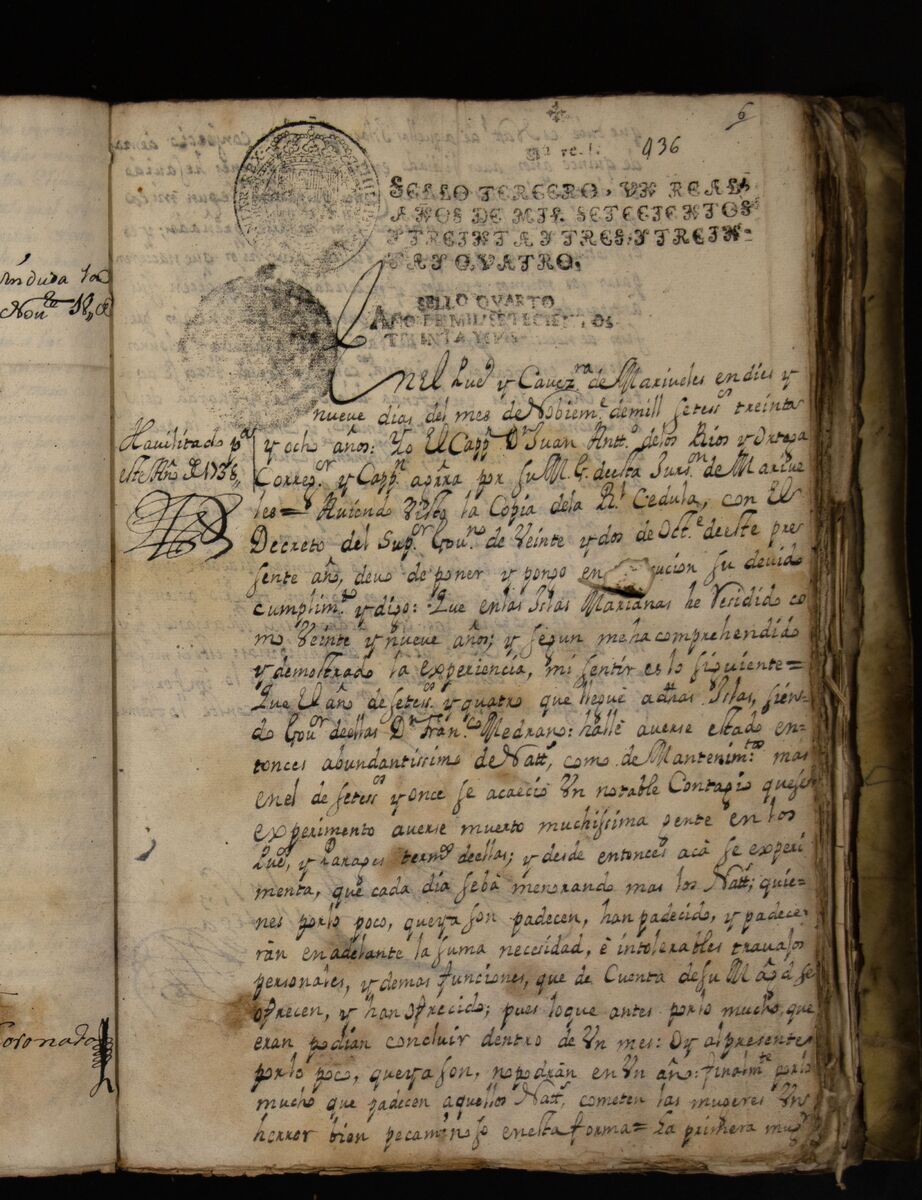 6
936
SELLO TERCERO, VN REAL
AÑOS DE MIL SETECIENTOS
Y TREINTA Y TRES, Y TREIN-
TA Y QVATRO,
SELLO QVARTO
AÑO DE MIL SETECIENTOS
TREINTA
Nou.e 18,,
En el Pueº y Cavez.ra de Mariveles en dies y
nueve dias del mes de Nobiem.e de mill setess.os treinta
Havilitado p.a
este Añ. d 1738,,
y ocho años: Yo El Capp.n D.n Juan Antt.o de los Rios y Ortega
Correg.or y Capp.n agura por su M.g de esta Juris.on de Marive
les= Auiendo Visto la Copia dela R.l Cedula, con El
Decreto del Sup.or Gou.no de Veinte y dos de Oct.e de este pre
sente año, devo de poner y pongo en cucion su devido
cumplim.to y digo: Que en las Islas Marianas he Residido co
mo Veinte y nueve años; y segun me ha comprehendido
y demostrado la experiencia, mi sentir es lo siguiente=
Que El año de setess.os y quatro que llegue a dhas Islas, sien-
do Gou.or de ellas D.n Fran.co Medrano: hallè averse estado en-
tonces abundantissimo de Natt.s, como de Mantenim.tos mas
en el de setess.os y once se acaeciò Vn notable Contagio que se
experimento averse muerto muchissima gente en los
Pue.s, y Parages term.os de ellas; y desde entonces acà se experi
menta, que cada dia se bà menorando mas los Natt.s; quie-
nes por lo poco, que ya son padecen, han padecido, y padece-
ràn en adelante la suma necesidad, è intolerables travajos
personales, y demas funciones, que de Cuenta de su Mag.d se
ofrecen, y han ofrecido; pues lo que antes por lo mucho, que
eran podian concluir dentro de Vn mes: Oy al presente
por lo poco, que ya son, no podràn en Vn año: finalm.te por lo
mucho que padecen aquellos Natt.s, cometen las mugeres Vn
herror bien pecaminoso en esta forma= La primera mug.r
Coronado